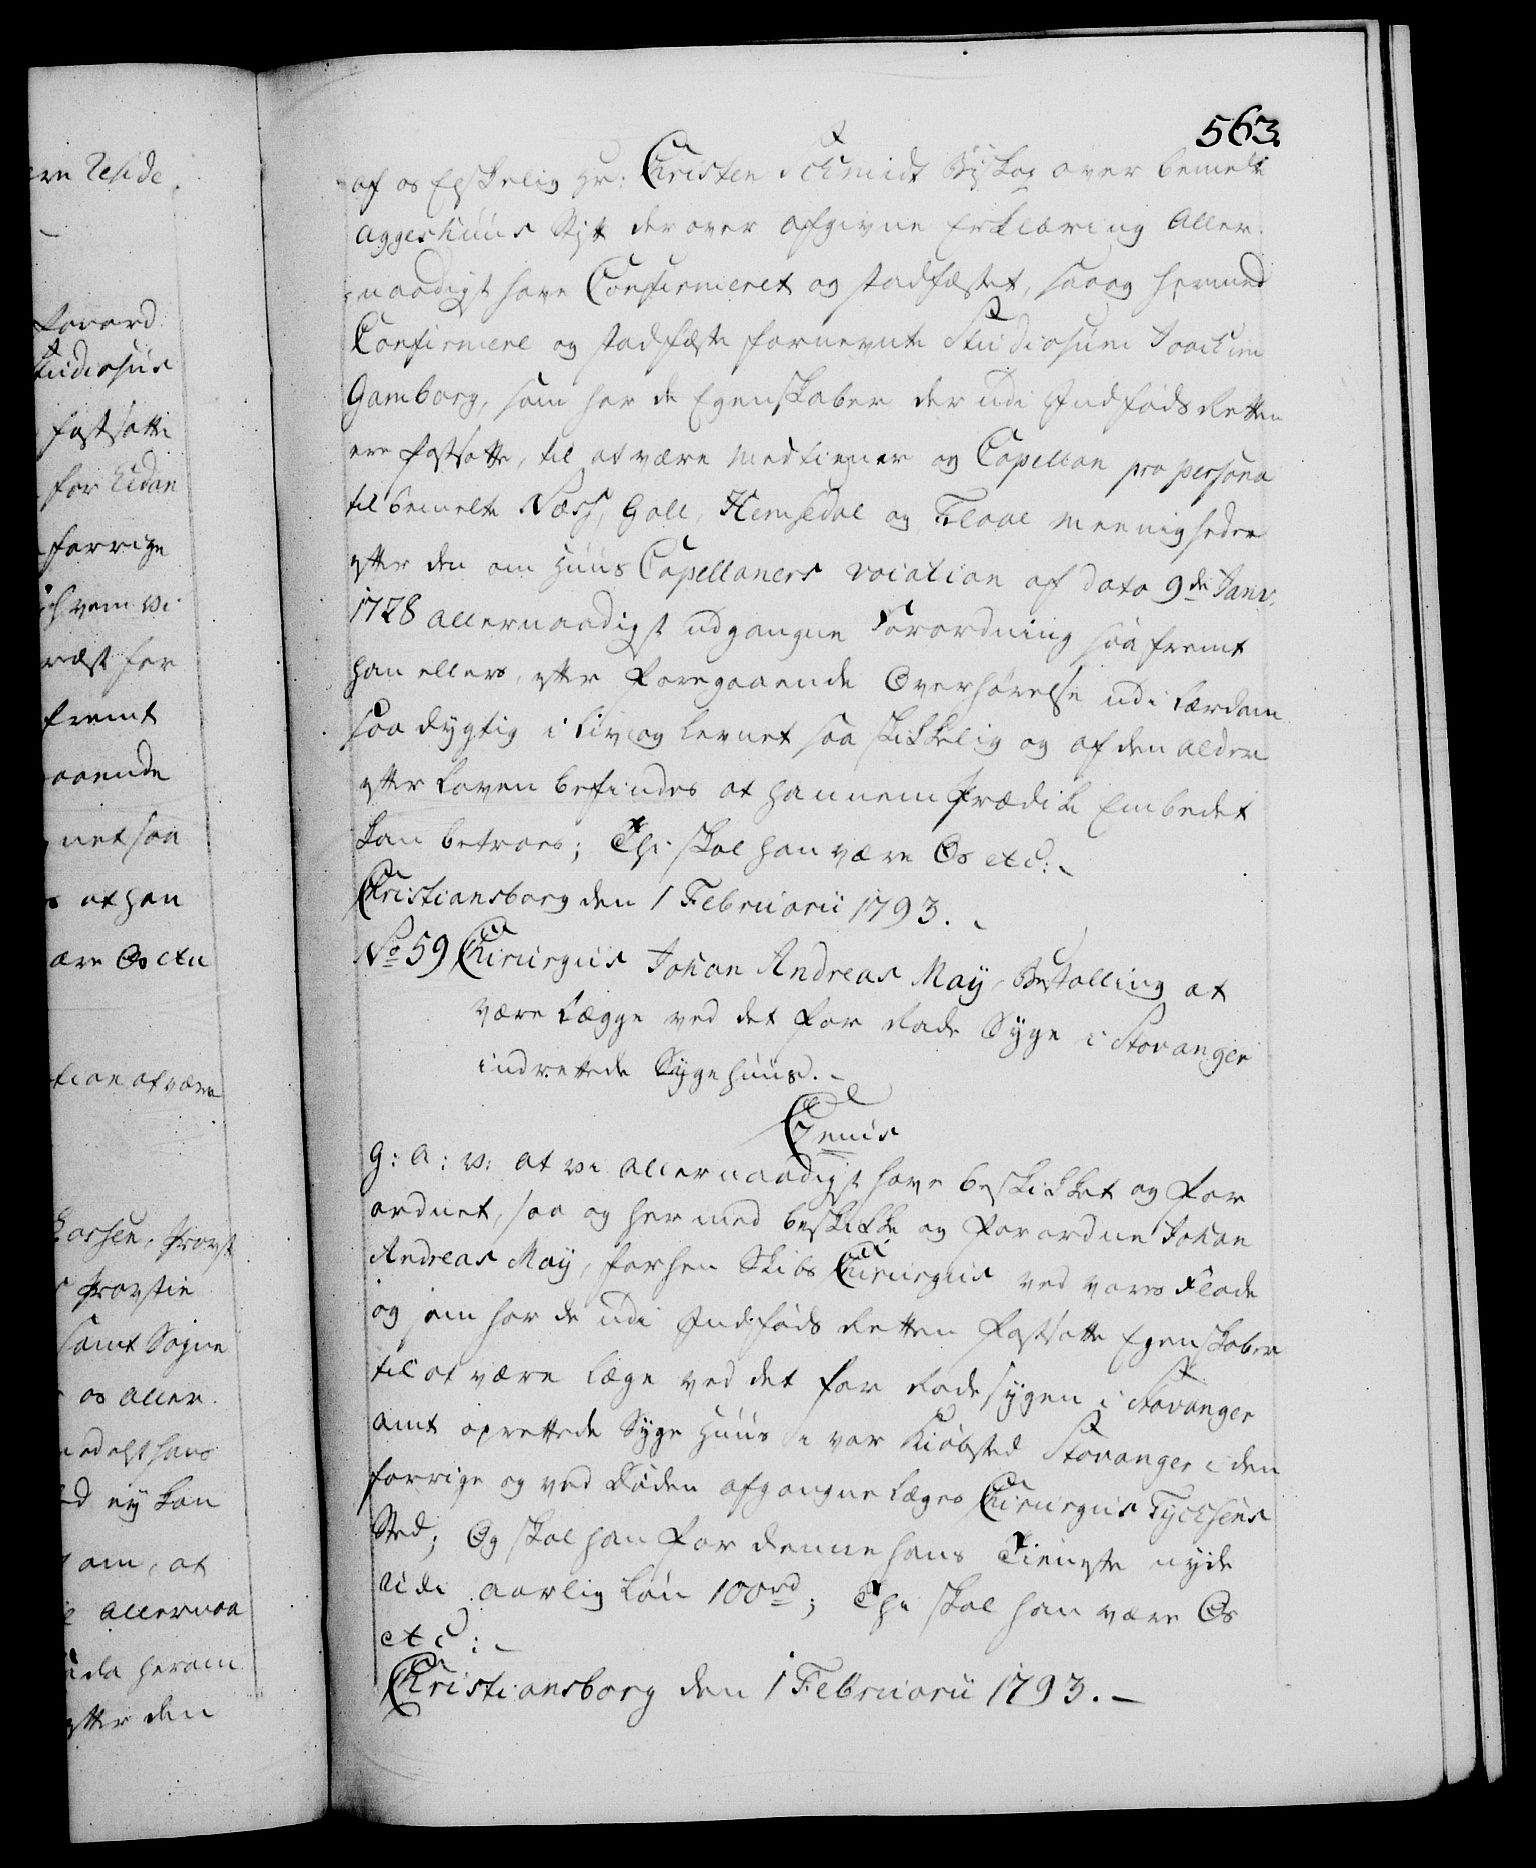 563.
af os Elskelig Hr: Christen Schmidt Biskop over bemelte
Aggershuus Stift derover afgivne Erklæring Aller-
naadigst have Confirmeret og stadfæstet, saa og hermed
Confirmere og stadfæste fornevnte Studiosum Joachim
Gamborg, som har de Egenskaber der udi Indføds Retten
ere fastsatte, til at være Medtiener og Capellan pro persona
til bemelte Næss, Gall, Hemsedal og Flaae Meenigheder
efter den om Huus Capellaners vocation af dato 9de Janv:
1728 allernaadigst udgangne Forordning saa fremt
han ellers, efter foregaaende Overhørelse udi Lærdom
saa dygtig i Liv og Levnet saa skikkelig og af den Alder
efter Loven befindes at hannem Prædike Embedet
kan betroes; Thi skal han være Os etc:
Christiansborg den 1 Februarii 1793.
No 59 Chirurgus Johan Andreas May, Bestalling at
være Lægge ved det for Rade Syge i Stavanger
indrettede Sygehuus.
C7enis
G: A: V: at vi allernaadigst have beskikket og for
ordnet, saa og hermed beskikke og forordne Johan
Andreas May, forhen Skibs Chirurgus ved vores Flode
og som har de udi Indføds Retten fastsatte Egenskaber
til at være Læge ved det for Radesygen i Stavanger
Amt oprettede Syge Huus i vor Kiøbsted Stavanger i den
forrige og ved Døden afgangne Læges Chirurgus Tychsens
Sted; Og skal han for denne hans Tieneste nyde
udi aarlig Løn 100rd; Thi skal han være Os
etc:
Christiansborg den 1 Februarii 1793.